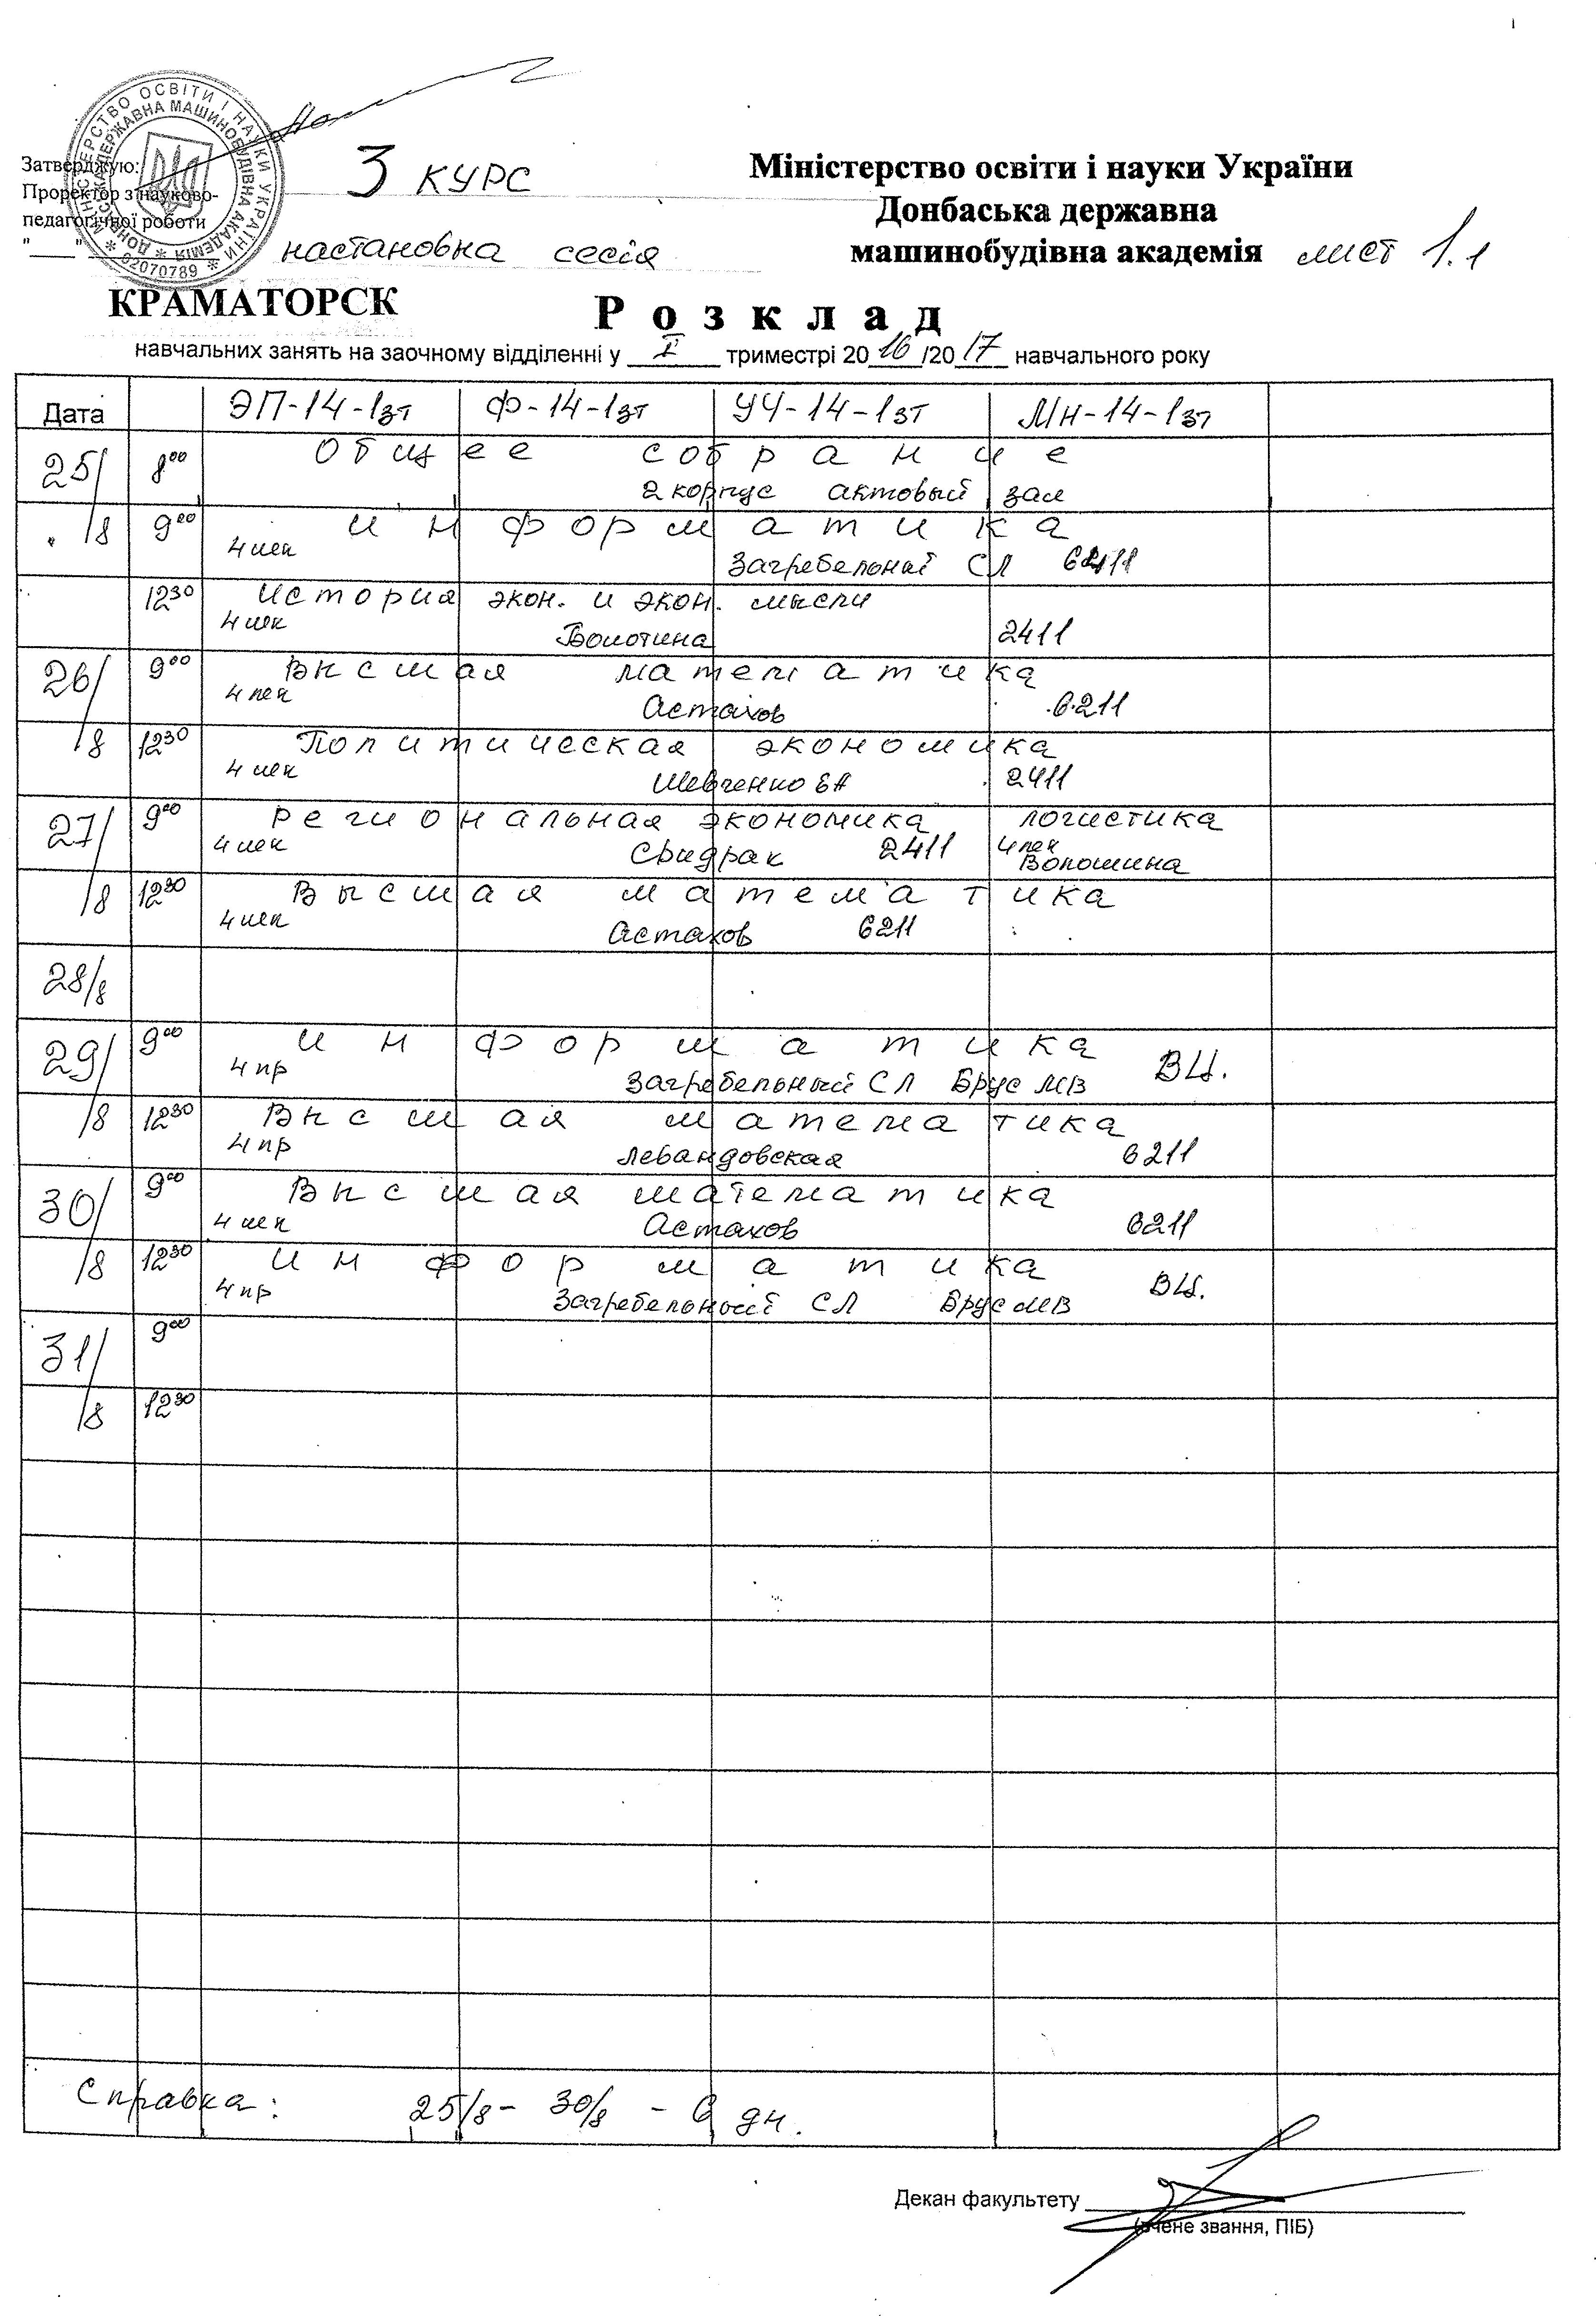 МІНІСТЕРСТВО ОСВІТИ І НАУКИ УКРАЇНИ
ДОНБАСЬКА ДЕРЖАВНА МАШИНОБУДІВНА АКАДЕМІЯ
02070789
Затверджую:
Проректор з науково-
педагогічної роботи
"____"
3 курс
настановна сесія
Міністерство освіти і науки України
Донбаська державна
машинобудівна академія лист 1.1
КРАМАТОРСК
Розклад
навчальних занять на заочному відділенні у I триместрі 2016/2017 навчального року
Дата ЭП-14-1зт Ф-14-1зт УЧ-14-1зт МН-14-1зт
25/8 800 Общее собрание
2 корпус актовый зал
900 информатика
4 лек Загребельный СЛ
12 30 История экон. и экон. мысли
4 лек Болотина 2411
26/8 900 Высшая математика
4 лек Астахов 6211
12 30 Политическая экономика
4 лек Шевченко 2411
27/8 900 региональная экономика логистика
4 лек Свидрак 2411 4 лек Волошина
12 30 Высшая математика
4 лек Астахов 6211
28/8
29/8 9 00 информатика
4 пр Загребельный СЛ Брус МВ ВЦ.
12 30 Высшая математика
4 пр Левандовская 6211
30/8 9 00 Высшая математика
4 лек Астахов 6211
12 30 информатика
4 пр Загребельный СЛ Брус МВ ВЦ.
31/8 9 00
12 30
Справка: 25/8 - 30/8 - 6 дн.
Декан факультету
(вчене звання, ПІБ)